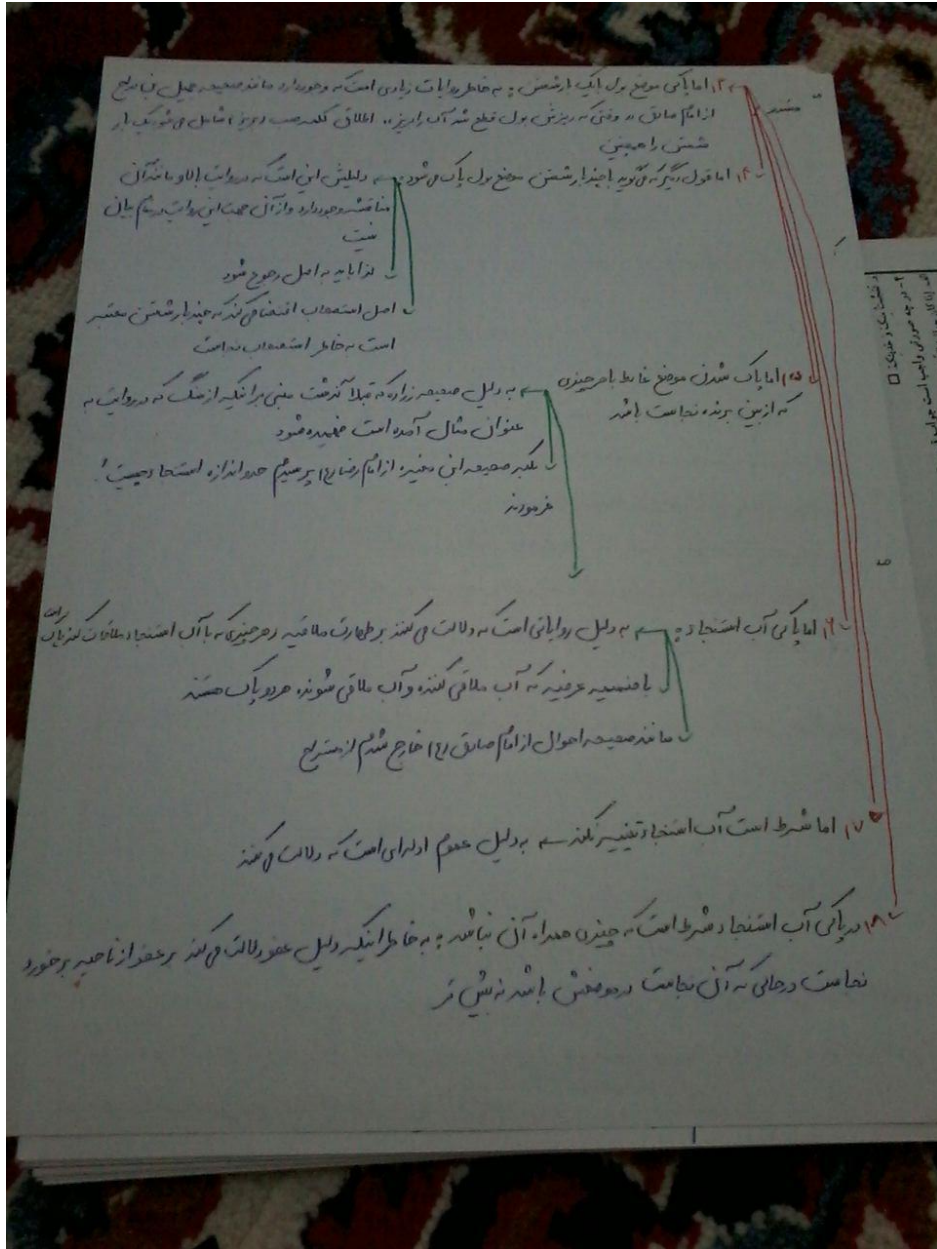 ۱۳. اما پاکی موضع بول با یک بار شستن: به خاطر روایات زیادی است که وجود دارد مانند صحیحه جمیل
مستند
از امام صادق «وقتی که ریزش بول قطع شد آب را بریز» اطلاق کلمه صب (بریز) شامل می شود یک بار
شستن را همچنین
۱۴. اما قول دیگر که می گوید با چند بار شستن موضع بول پاک می شود دلیلش این است که در روایت بالا و مانند آن
مناقشه وجود دارد و از آن جهت این روایت در مقام بیان
نیست
لذا باید به اصل رجوع شود
اصل استصحاب اقتضا می کند که چند بار شستن معتبر
است به خاطر استصحاب نجاست
۱۵. اما پاک شدن موضع غائط با هر چیزی به دلیل صحیحه زراره که قبلا گذشت مبنی بر اینکه از سنگ که در روایت به
که از بین برنده نجاست باشد عنوان مثال آمده است فهمیده شود
بلکه صحیحه ابن مغیره از امام رضا (ع) پرسیدم حد و اندازه استنجاء چیست؟
فرمودند
۱۶. اما پاکی آب استنجاء: به دلیل روایاتی است که دلالت می کنند بر طهارت ملاقیه و هر چیزی که با آب استنجاء ملاقات کند پاک است
با ضمیمه عرفیه که آب ملاقی کننده و آب ملاقی شونده هر دو پاک هستند
مانند صحیحه احول از امام صادق (ع) خارج شدم از مستراح
۱۷. اما شرط است آب استنجاء تغییر نکند به دلیل عموم ادله ای است که دلالت می کند
۱۸. در پاکی آب استنجاء شرط است که چیزی همراه آن نباشد: به خاطر اینکه دلیل عفو دلالت می کند بر عفو از ناحیه برخورد
نجاست در حالی که آن نجاست در موضعش باشد نه بیش تر
۲- در چه صورتی واجب است